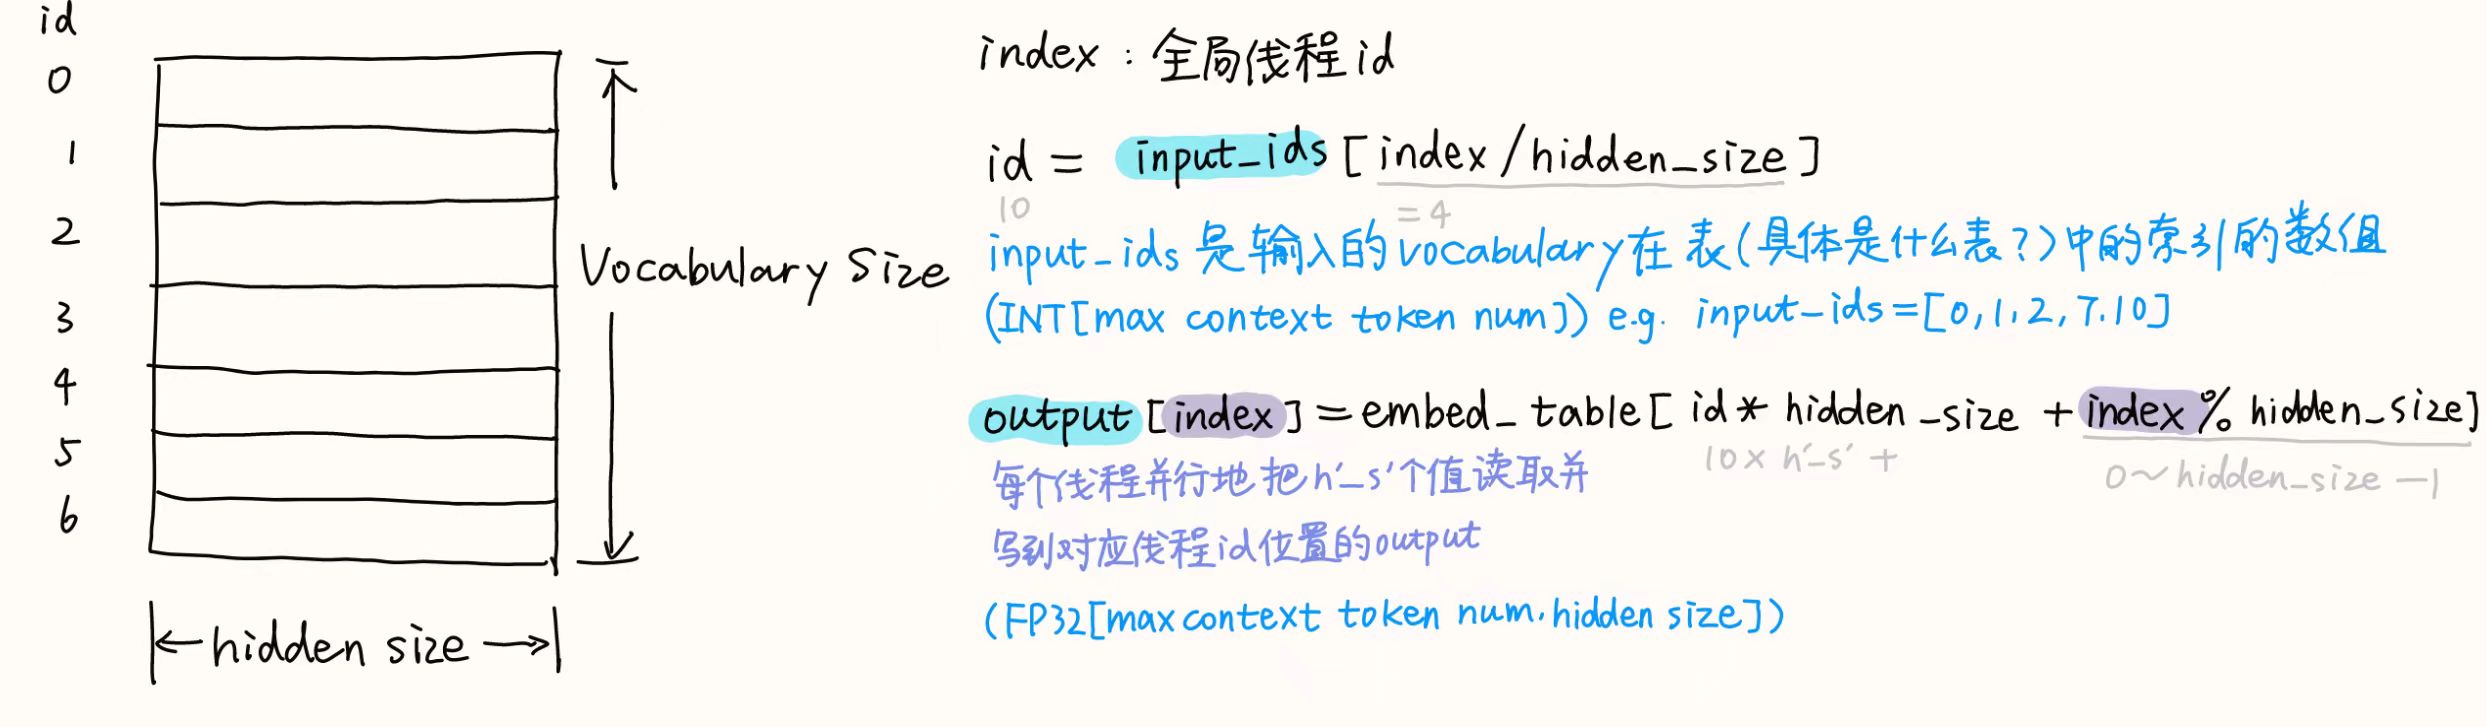 id
0
1
2
3
4
5
6
Vocabulary Size
hidden size
index : 全局线程id
id = input_ids [index/hidden_size]
10
=4
input_ids 是输入的vocabulary在表(具体是什么表?)中的索引的数组
(INT[max context token num]) e.g. input-ids=[0,1,2,7,10]
output [index] = embed_table[ id * hidden_size + index % hidden_size]
10 × h'_s' +
0~hidden_size -1
每个线程并行地把h'_s'个值读取并
写到对应线程id位置的output
(FP32[max context token num, hidden size])